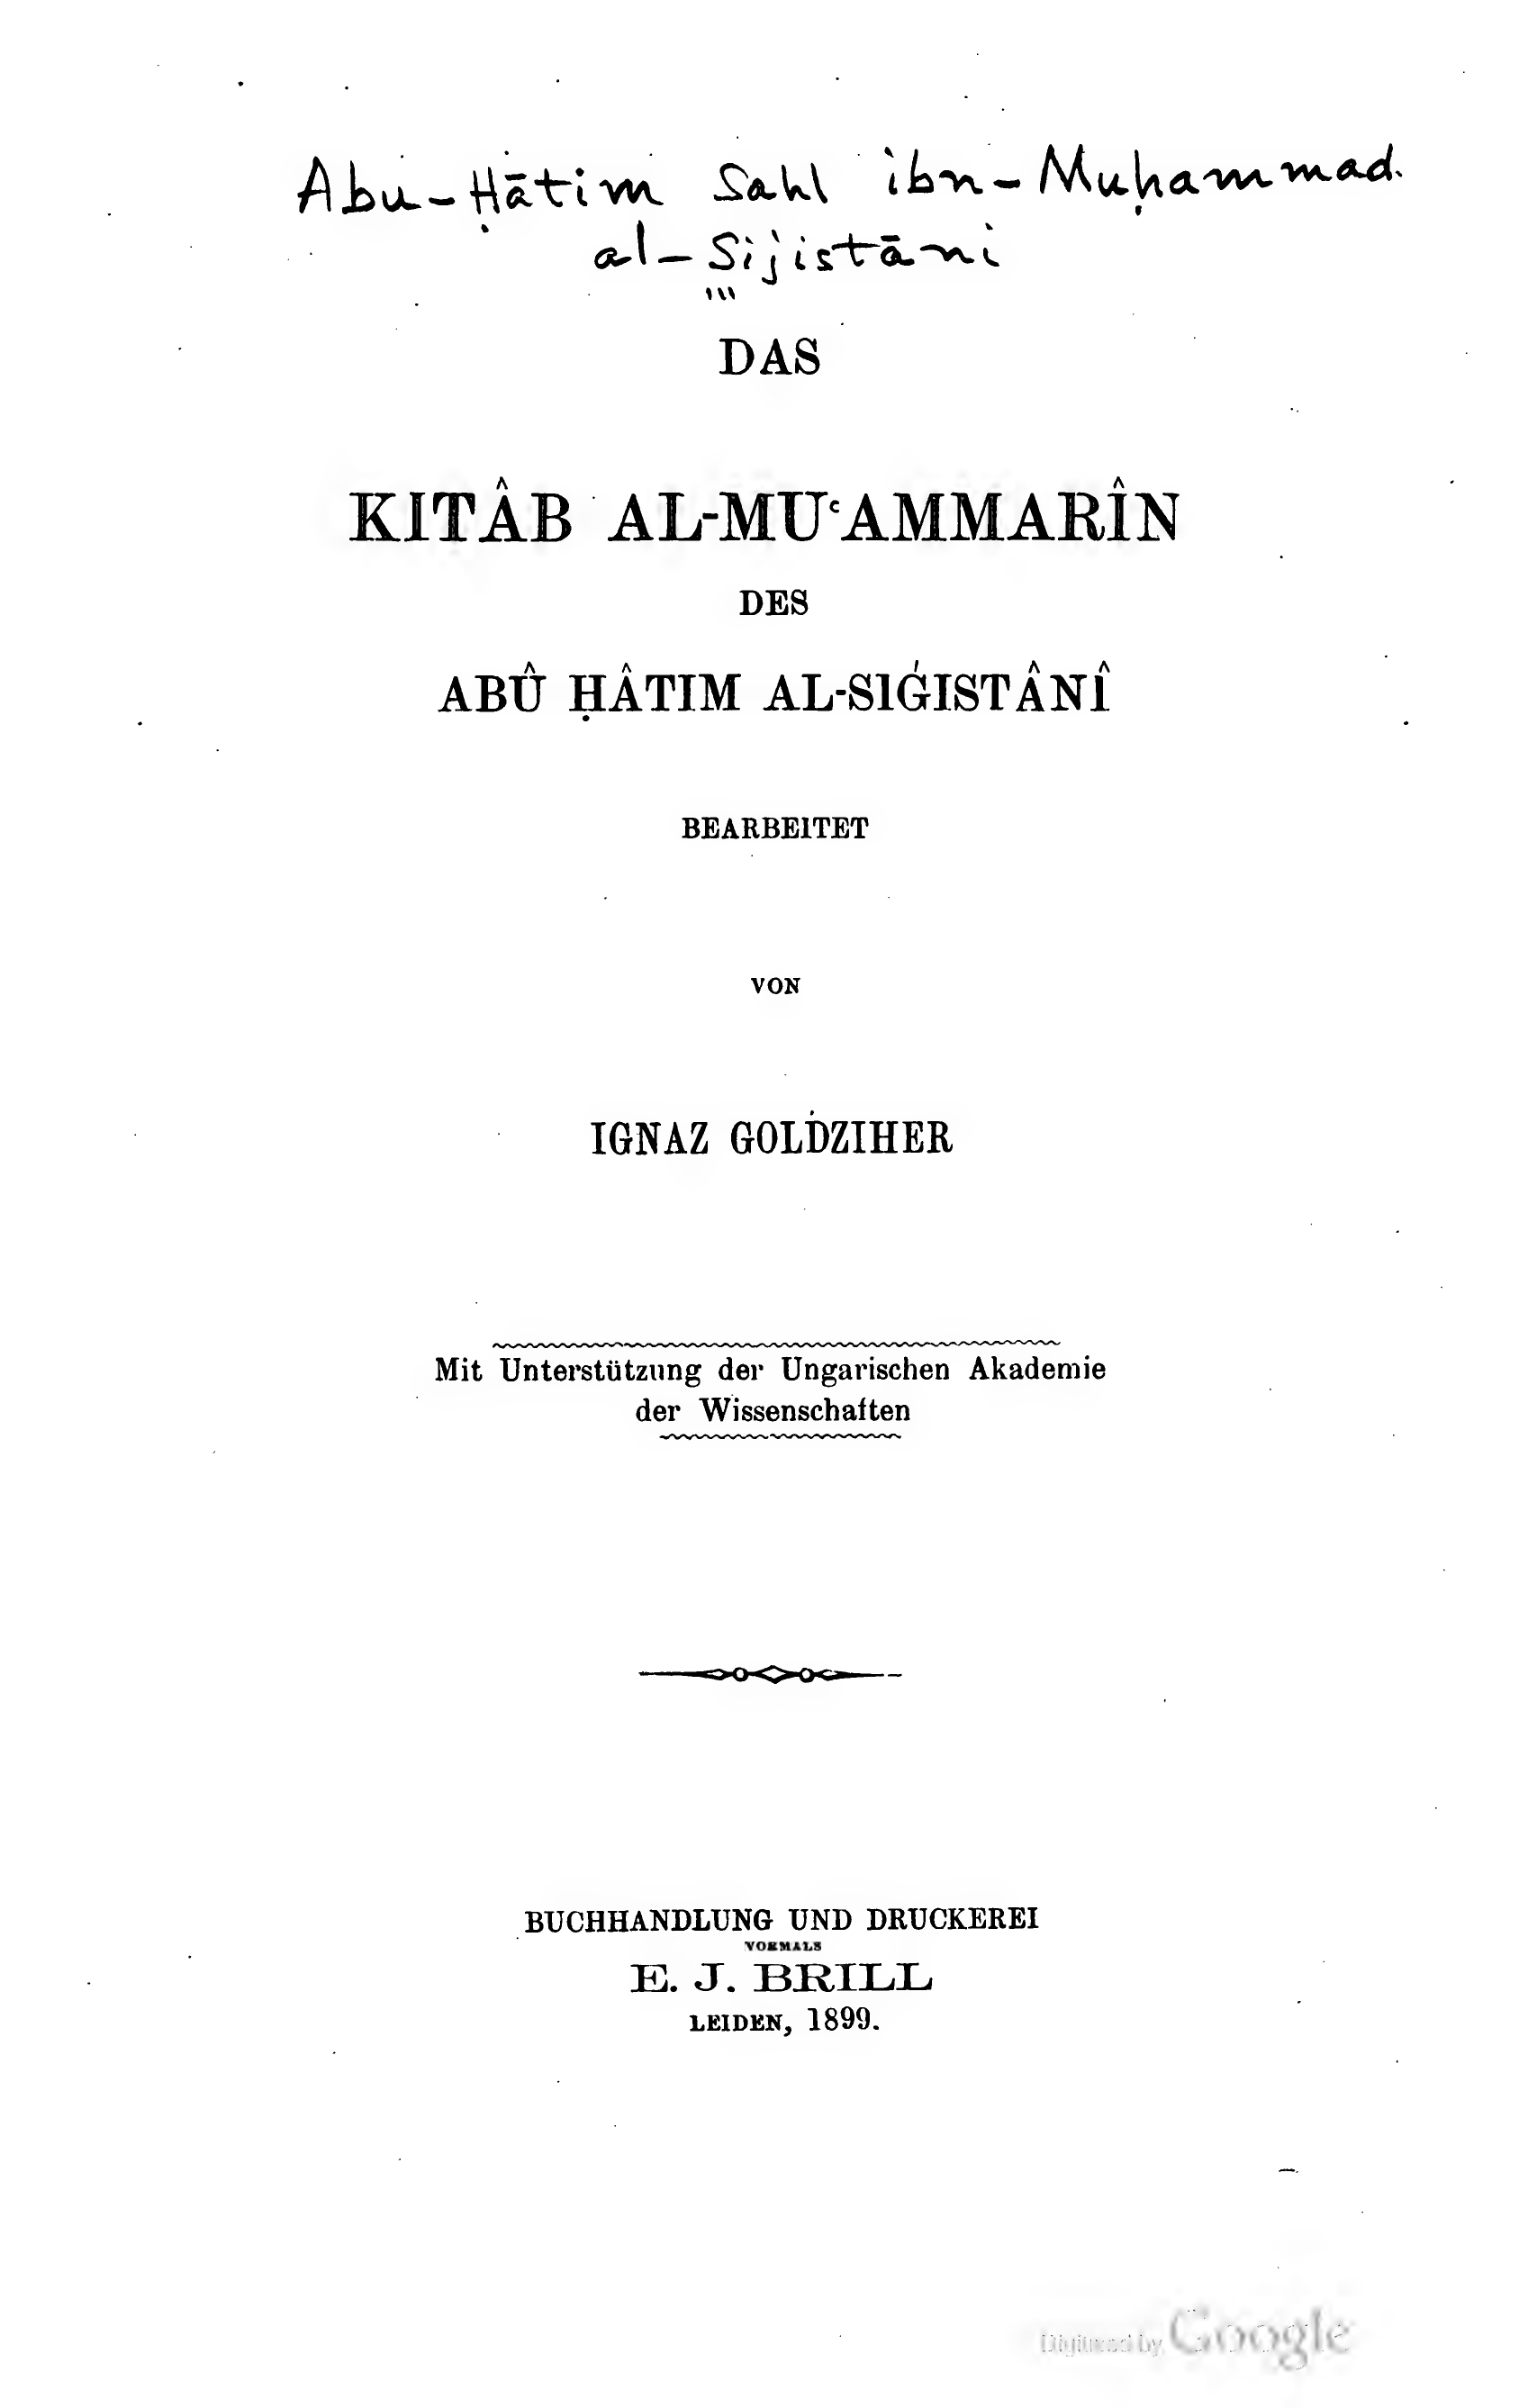 Abu-Ḥātim Sahl ibn-Muḥammad.
al-Sijistāni
DAS
KITÂB AL-MUʿAMMARÎN
DES
ABÛ ḤÂTIM AL-SIǴISTÂNÎ
BEARBEITET
VON
IGNAZ GOLDZIHER
Mit Unterstützung der Ungarischen Akademie
der Wissenschaften
BUCHHANDLUNG UND DRUCKEREI
VORMALS
E. J. BRILL
LEIDEN, 1899.
Digitized by Google